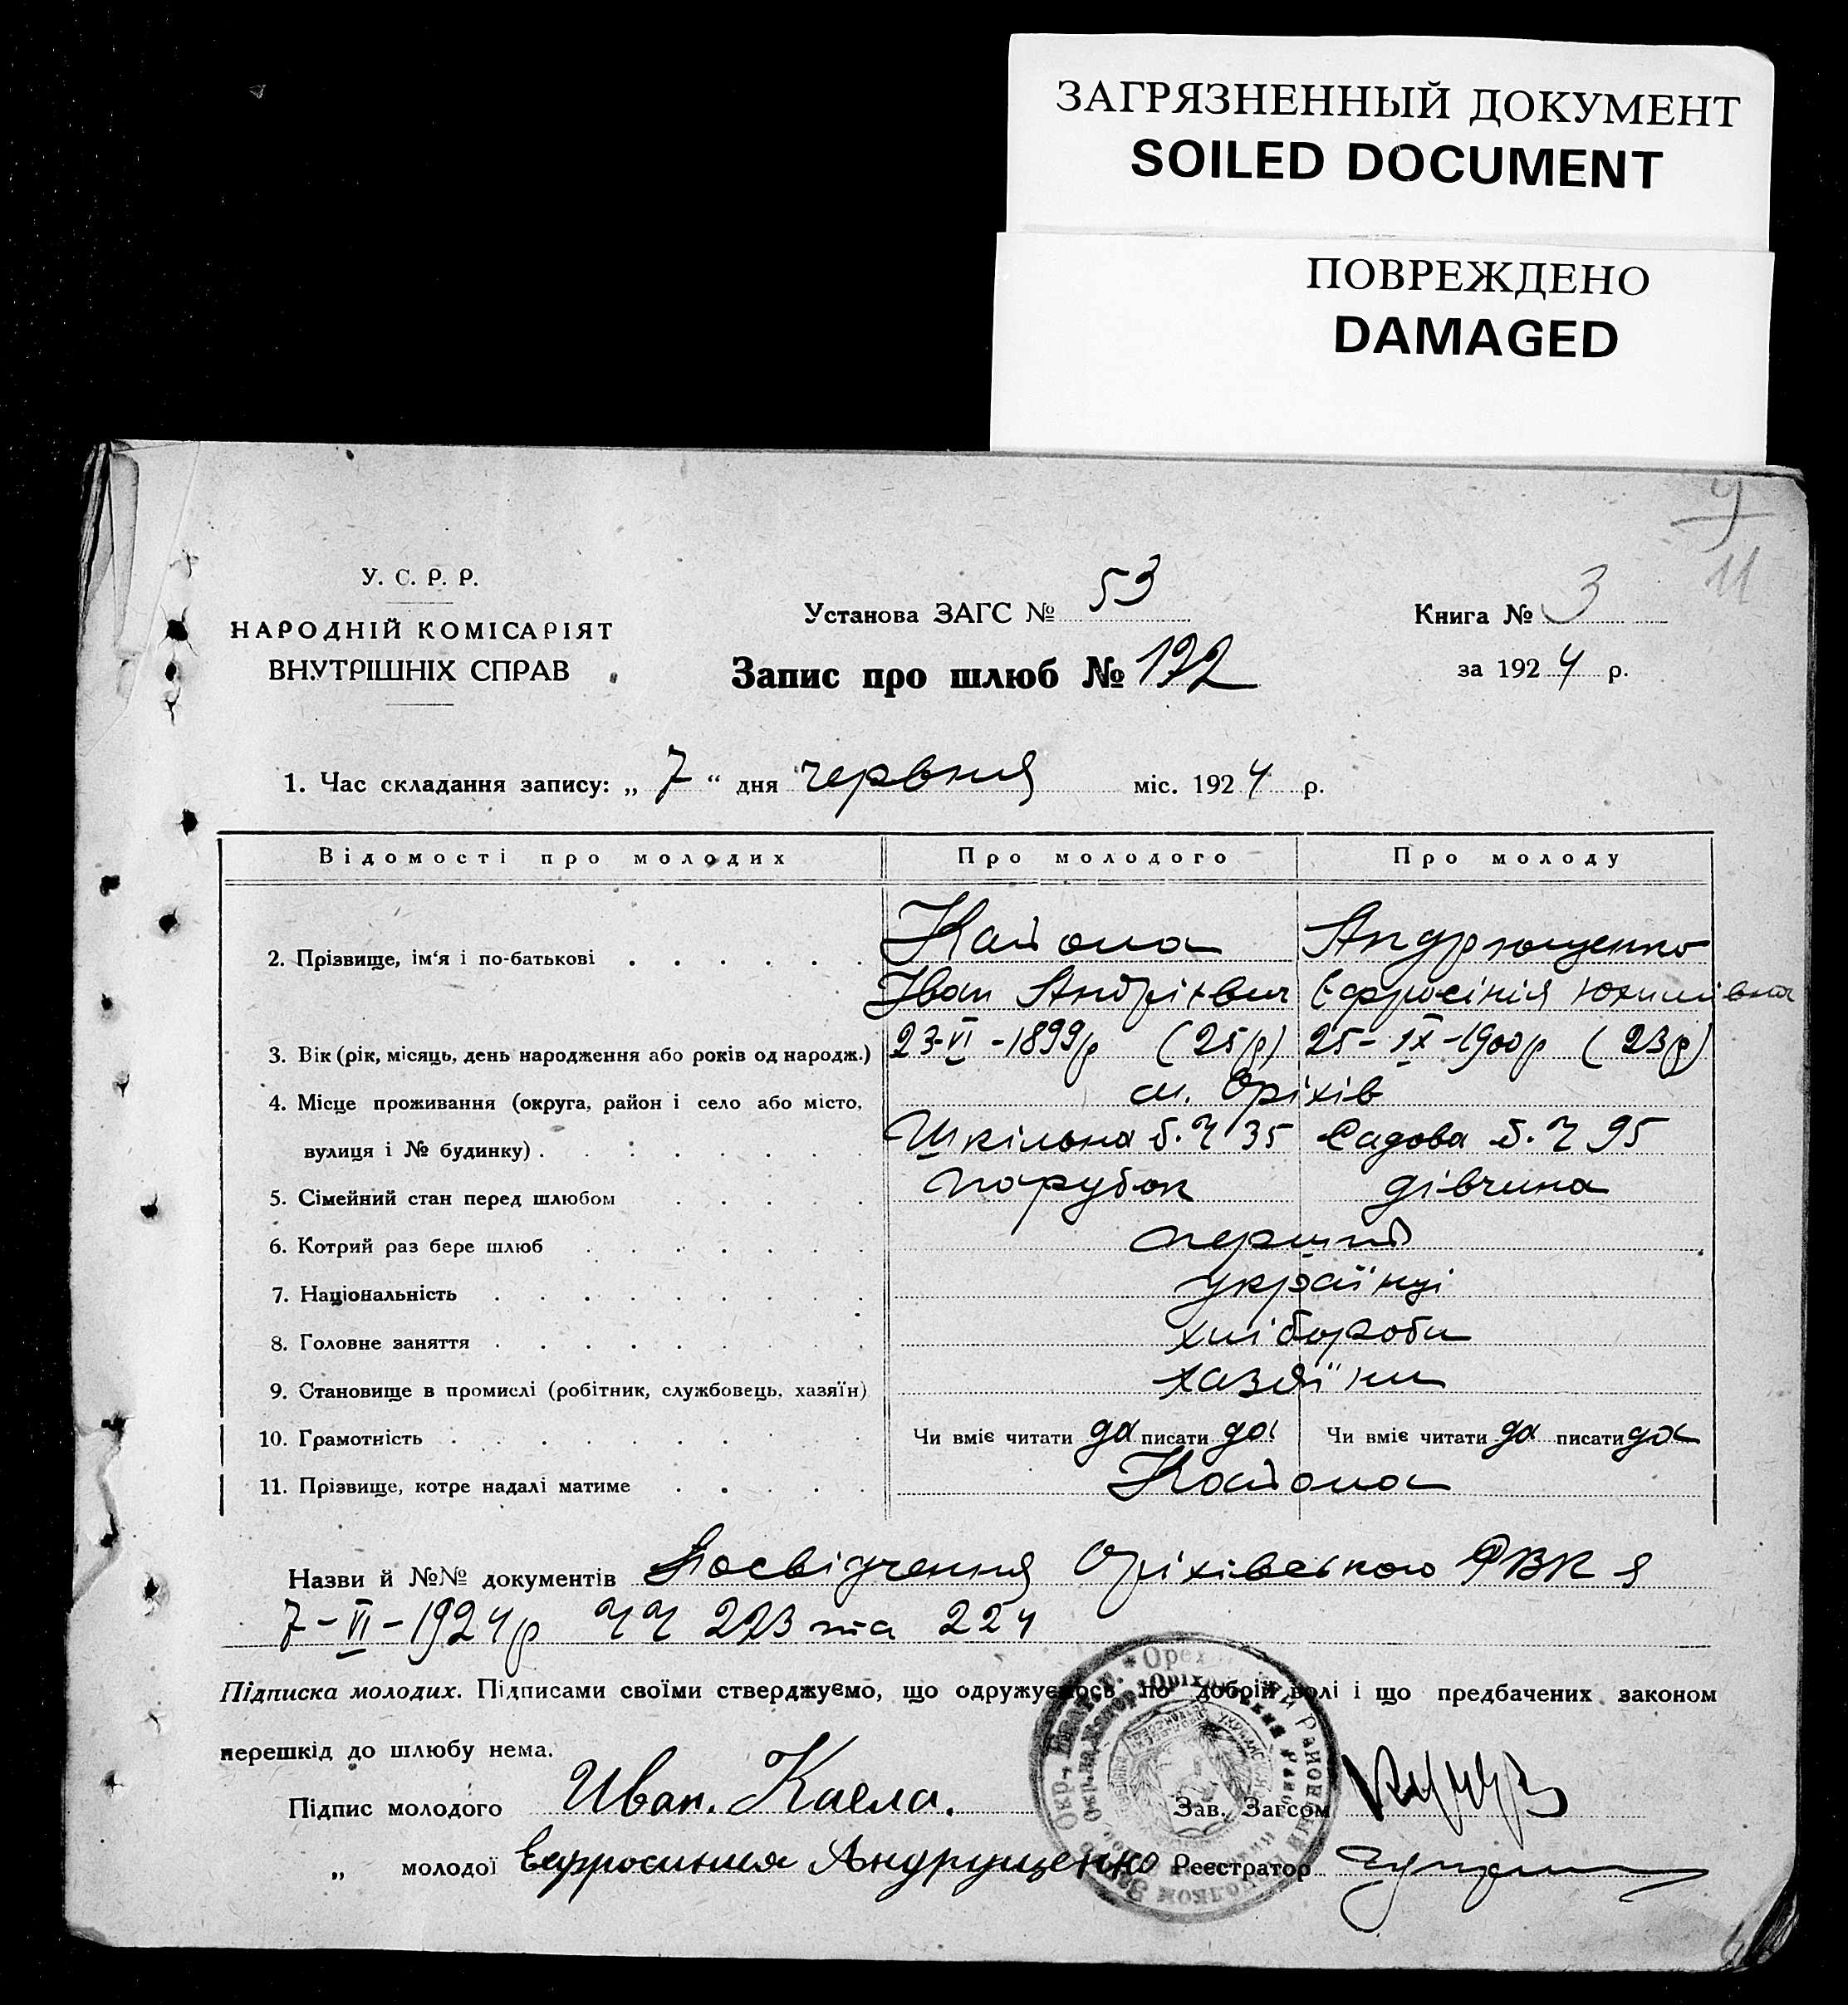 ЗАГРЯЗНЕННЫЙ ДОКУМЕНТ
SOILED DOCUMENT
ПОВРЕЖДЕНО
DAMAGED
9
11
У. С. Р. Р.
НАРОДНІЙ КОМІСАРІЯТ
ВНУТРІШНІХ СПРАВ
Установа ЗАГС № 53
Книга № 3
Запис про шлюб № 172
за 1924 р.
1. Час складання запису: „ 7 “ дня червня міс. 1924 р.
Відомості про молодих Про молодого Про молоду
2. Прізвище, ім'я і по-батькові Андрющенко
Іван Андрієвич Єфросінія Юхимівна
3. Вік (рік, місяць, день народження або років од народж.) 23-VI-1899р (25р) 25-IX-1900р (23р)
4. Місце проживання (округа, район і село або місто, м. Оріхів
вулиця і № будинку) Шкільна б. Ч 35 Садова б. Ч 95
5. Сімейний стан перед шлюбом парубок дівчина
6. Котрий раз бере шлюб перший
7. Національність українці
8. Головне заняття хлібороби
9. Становище в промислі (робітник, службовець, хазяїн) хазяїни
10. Грамотність Чи вміє читати да писати да Чи вміє читати да писати да
11. Прізвище, котре надалі матиме
Назви й №№ документів Посвідчення Оріхівського РВК я
7-VI-1924р ЧЧ 223 та 224
Підписка молодих. Підписами своїми стверджуємо, що одружуємось по добрій волі і що предбачених законом
перешкід до шлюбу нема.
Підпис молодого Иван.
Зав. Загсом
„ молодої Евфросиния Андрущенко
Реєстратор